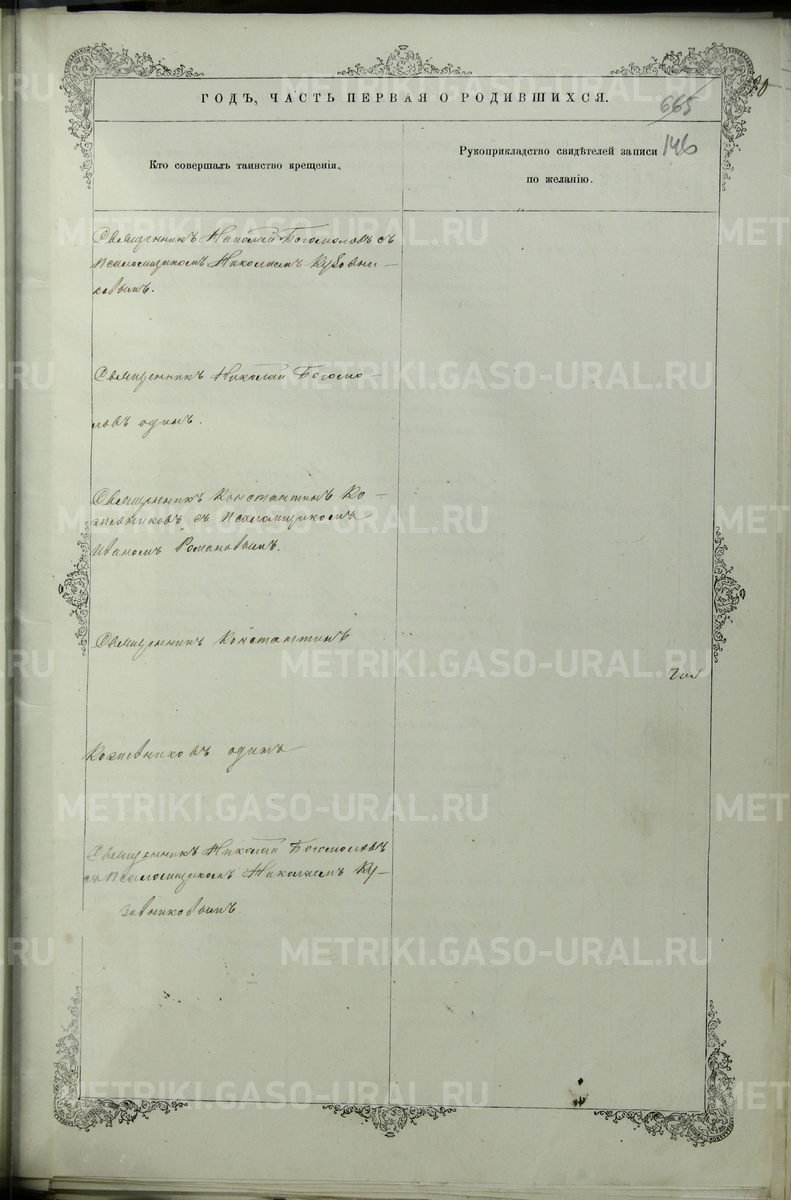 ГОДЪ, ЧАСТЬ ПЕРВАЯ О РОДИВШИХСЯ.
665
146
Кто совершалъ таинство крещенія.
Рукоприкладство свидѣтелей записи
по желанію.
Священникъ Николай Богомоловъ съ
Псаломщикомъ Николаемъ Кузовни-
ковымъ.
Священникъ Николай Богомо-
ловъ одинъ.
Священникъ Константинъ Ко-
жевниковъ съ Псаломщикомъ
Иваномъ Романовымъ.
Священникъ Константинъ
Кожевниковъ одинъ
Священникъ Николай Богомоловъ
съ Псаломщикомъ Николаемъ Ку-
зовниковымъ.
METRIKI.GASO-URAL.RU